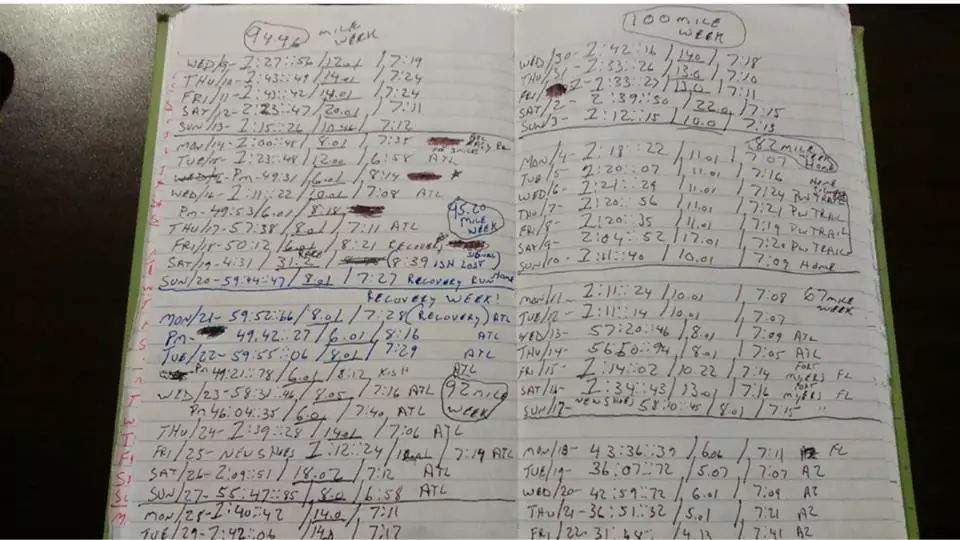 94.46 MILE WEEK
WED/9- 1:27::56 /12.01 /7:19
THU/10- 1:43::49 /14.01 /7:24
FRI/11- 1:43::42 /14.01 /7:24
SAT/12- 2:23::47 /20.01 /7:11
SUN/13- 1:15::26 /10.46 /7:12
MON/14- 1:00::48 /8.01 /7:35
TUE/15- 1:23::48 /12.00 /6:58 ATL
PM- 49:31 /6.01 /8:14
WED/16- 1:11::22 /10.01 /7:08 ATL
PM- 49:53/6.01 /8:18
95.20 MILE WEEK
THU/17- 57:38 /8.01 /7:11 ATL
FRI/18- 50:12 /6.01 /8:21 RECOVERY
SAT/19- 4:31 / 31.2 /8:39
SUN/20- 59:44::47/ 8.01 /7:27 RECOVERY RUN HOME
RECOVERY WEEK!
MON/21- 59:52::66/8.01/7:28 (RECOVERY) ATL
PM- 49:42::27/6.01/8:16 ATL
TUE/22- 59:55::06 /8.01/7:29 ATL
PM 49:21::78 /6.01 /8:12 ATL
WED/23- 58:31::46 /8.05 /7:16 ATL
92 MILE WEEK
PM 46:04::35/6.01 /7:40 ATL
THU/24- 1:39::28 /14.01 /7:06 ATL
FRI/25- NEW SHOES 1:12::24 /7:14 ATL
SAT/26- 2:09::51 /18.02 /7:12 ATL
SUN/27- 55:47::85 /8.0 /6:58 ATL
MON/28- 1:40::42 /14.0 /7:11
TUE/29- 1:42::06 /14.0 /7:17
100 MILE WEEK
WED/30- 1:42::16 /14.0 /7:18
THU/31- 1:33::26 /13.0 /7:10
FRI 1- 1:33::27 /13.0 /7:11
SAT/2- 2:39::50 /22.0 /7:15
SUN/3- 1:12::15 /10.0 /7:13
82 MILE WEEK
MON/4- 1:18::22 /11.01 /7:07 HOME
TUE/5- 1:20::07 /11.01 /7:16 HOME
WED/6- 1:21::29 /11.01 /7:24 PW TRAIL
THU/7- 1:20::56 /11.01 /7:21 PW TRAIL
FRI/8- 1:20::35 /11.01 /7:19 PW TRAIL
SAT/9- 2:04::52 /17.01 /7:20 PW TRAIL
SUN/10- 1:11::40 /10.01 /7:09 HOME
MON/11- 1:11::24 /10.01 /7:08 67 MILE WEEK
TUE/12- 1:11::14 /10.01 /7:07
WED/13- 57:20::46 /8.01 /7:09 ATL
THU/14- 56:50::94 /8.01 /7:05 ATL
FRI/15- 1:14::02 /10.22 /7:14 FORT MYERS FL
SAT/16- 1:34::43/ 13.01 /7:16 FORT MYERS FL
SUN/17- NEW SHOES 58:10::45/ 8.01 /7:15 "
MON/18- 43:36::39 /6.06 /7:11 FL
TUE/19- 36:07::72 /5.07 /7:07 AZ
WED/20- 42:59::72 /6.01 /7:09 AZ
THU/21- 36:51::32 /5.01 /7:21 AZ
FRI/22- 31:48:: /4.13 /7:41 AZ